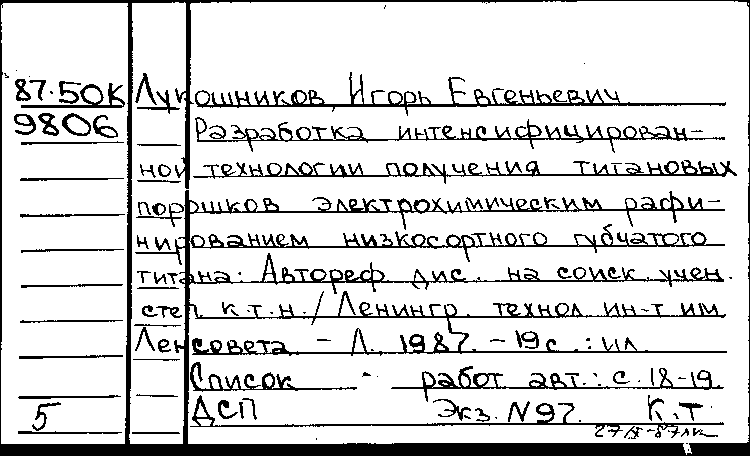 87-50К Лукошников, Игорь Евгеньевич
9806 Разработка интенсифицирован-
ной технологии получения титановых
порошков электрохимическим рафи-
нированием низкосортного губчатого
титана: Автореф. дис. на соиск. учен.
степ. к.т.н./ Ленингр. технол. ин-т им.
Ленсовета. - Л., 1987. - 19 с.: ил.
Список - работ авт.: с. 18-19.
5 ДСП Экз. N97. К.Т